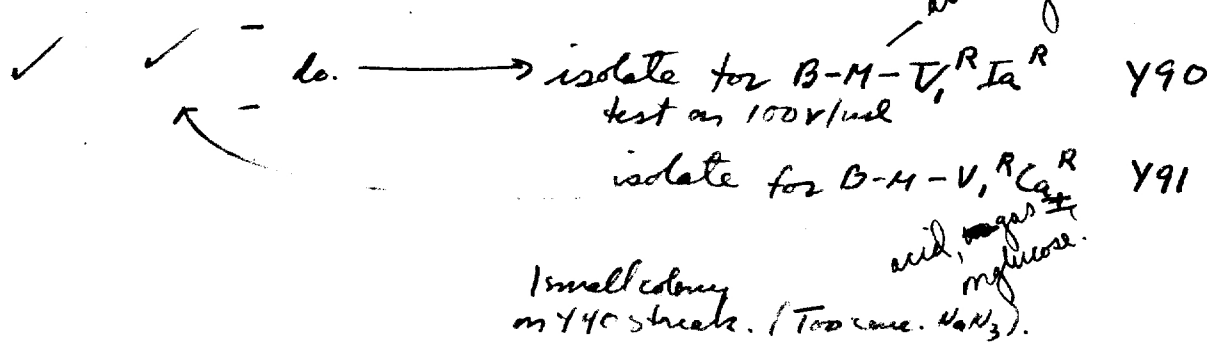 ✓ ✓ – do. → isolate for B-M-V₁ᴿ Iaᴿ Y90
– test on 100γ/ml
isolate for B-M-V₁ᴿ Caᴿ Y91
acid, gas ±
glucose.
1 small colony
on Y40 streak. (Too conc. NaN₃).